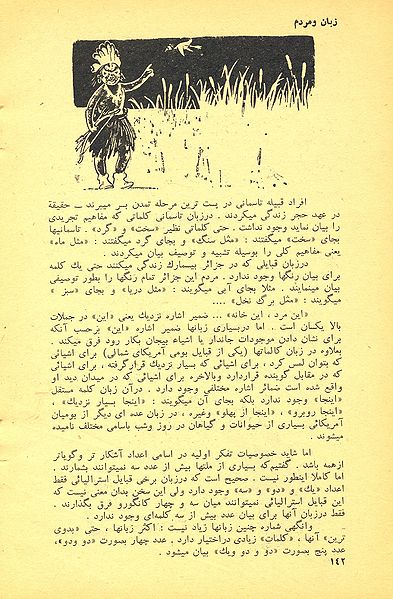 زبان ومردم
افراد قبیله تاسمانی در پست ترین مرحله تمدن بسر میبرند ــ حقیقة
در عهد حجر زندگی میکردند . درزبان تاسمانی کلماتی که مفاهیم تجریدی
را بیان نماید وجود نداشت . حتی کلماتی نظیر «سخت» و «گرد» . تاسمانیها
بجای «سخت» میگفتند : «مثل سنگ» و بجای گرد میگفتند : «مثل ماه»
یعنی مفاهیم کلی را بوسیله تشبیه و توصیف بیان میکردند .
درزبان قبایلی که در جزائر بیسمارک زندگی میکنند حتی یك کلمه
برای بیان رنگها وجود ندارد . مردم این جزائر تمام رنگها را بطور توصیفی
بیان مینمایند . مثلا بجای آبی میگویند : «مثل دریا» و بجای «سبز »
میگویند : «مثل برگ نخل» ....
«این مرد ، این خانه» ... ضمیر اشاره نزدیك یعنی «این» در جملات
بالا یکسان است . اما دربسیاری زبانها ضمیر اشاره «این» برحسب آنکه
برای نشان دادن موجودات جاندار یا اشیاء بیجان بکار رود فرق میکند .
بعلاوه در زبان کالماتها (یکی از قبایل بومی آمریکای شمالی) برای اشیائی
که بتوان لمس کرد ، برای اشیائی که بسیار نزدیك قرارگرفته ، برای اشیائی
که در مقابل گوینده قراردارد وبالاخره برای اشیائی که در میدان دید او
واقع شده است ضمائر اشاره مختلفی وجود دارد . درآن زبان ، کلمه مستقل
«اینجا» وجود ندارد بلکه بجای آن میگویند : «اینجا بسیار نزدیك» ،
«اینجا روبرو» ، «اینجا از پهلو» وغیره ، در زبان عده ای دیگر از بومیان
آمریکائی بسیاری از حیوانات و گیاهان در روز وشب باسامی مختلف نامیده
میشوند .
اما شاید خصوصیات تفکر اولیه در اسامی اعداد آشکار تر وگویاتر
ازهمه باشد . گفتیم که بسیاری از ملتها بیش از عدد سه نمیتوانند بشمارند .
اما کاملا اینطور نیست . صحیح است که درزبان برخی قبایل استرالیائی فقط
اعداد «یك» و «دو» و «سه» وجود دارد ولی این سخن بدان معنی نیست که
این قبایل استرالیائی نمیتوانند میان سه و چهار کانگورو فرق بگذارند .
فقط درزبان آنها برای بیان عدد بیش از سه کلمه‌ای وجود ندارد .
وانگهی شماره چنین زبانها زیاد نیست : اکثر زبانها ، حتی «بدوی
ترین» آنها ، «کلمات» زیادی دراختیار دارد . عدد چهار بصورت «دو ودو»،
عدد پنج بصورت «دو و دو ویك» بیان میشود .
۱۴۲